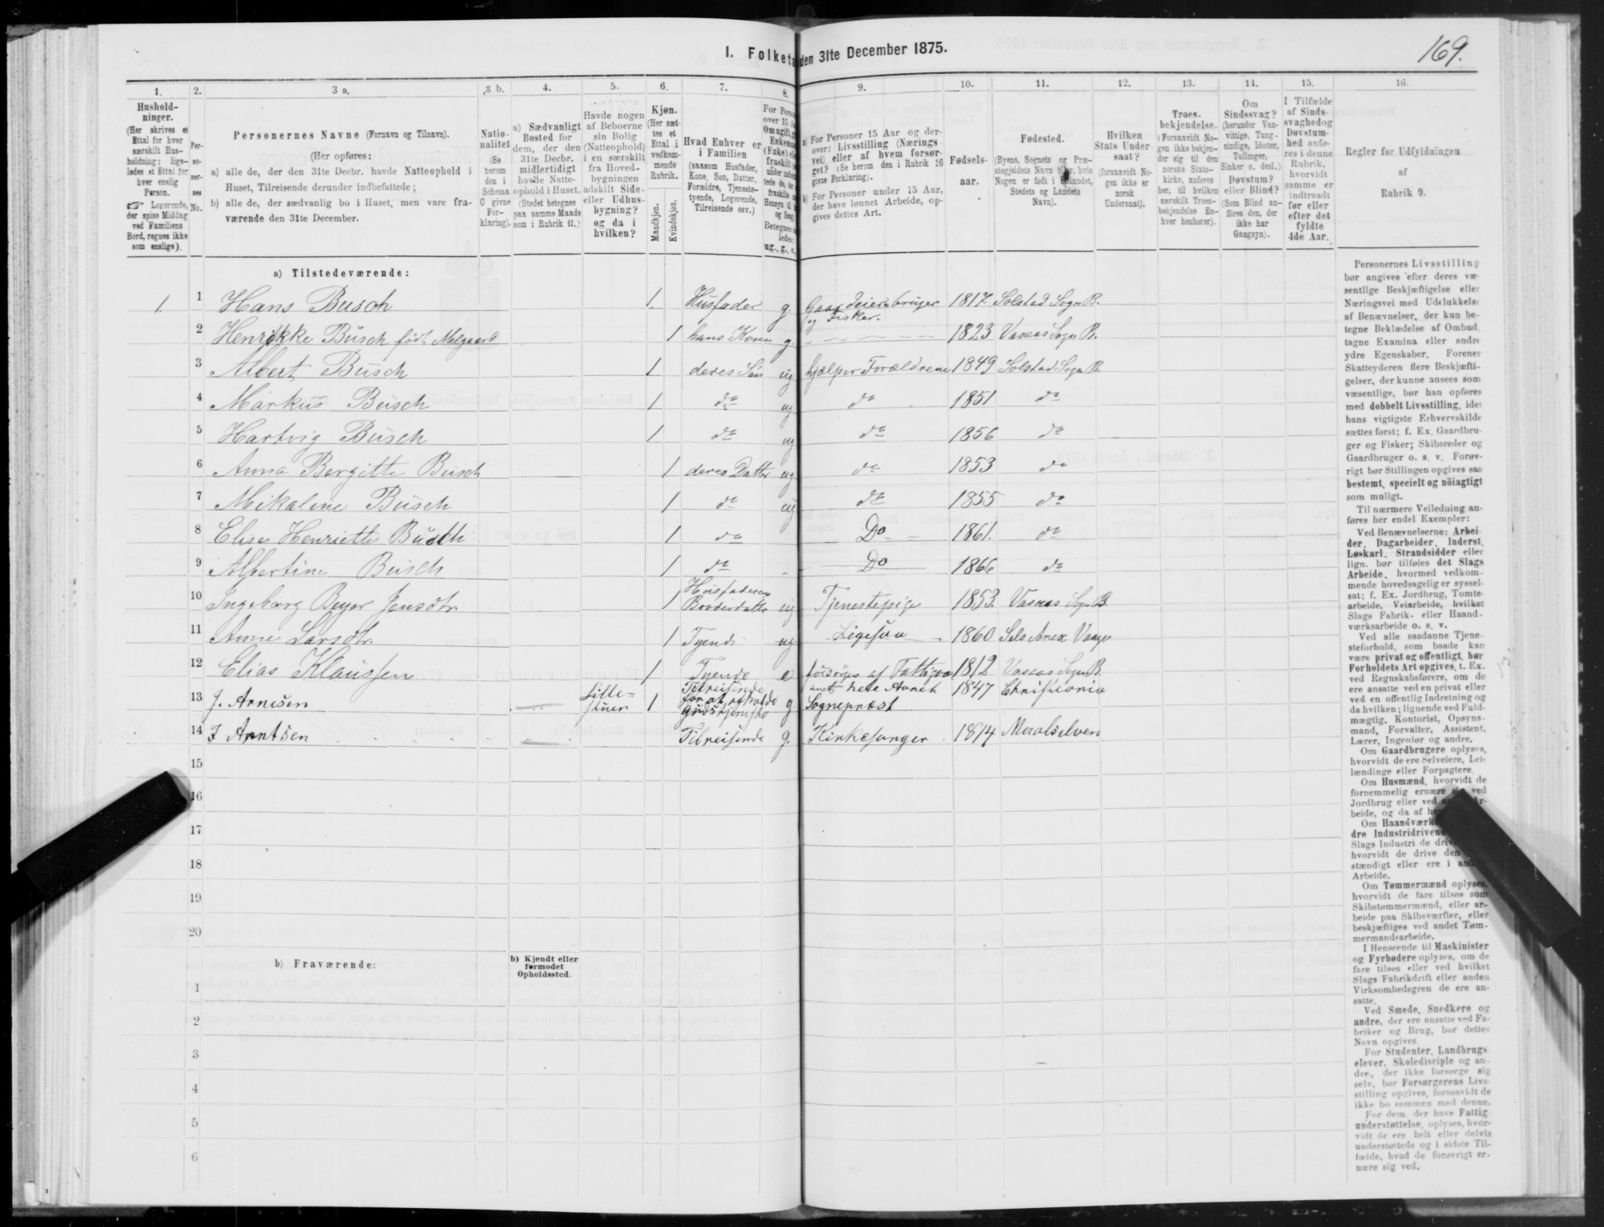 I. Folketæ den 31te December 1875.
169.
1. 2. 3 a. 3 b. 4. 5. 6. 7. 8. 9. 10. 11. 12. 13. 14. 15. 16.
Hushold-
ninger.
(Her skrives et
Ettal for hver
særskilt Hus-
holdning; lige-
ledes et Ettal for
hver enslig
Person.
☞ Logerende,
der spise Middag
ved Familiens
Bord, regnes ikke
som enslige).
Per-
so-
ner-
nes
No.
Personernes Navne (Fornavn og Tilnavn).
(Her opføres:
a) alle de, der den 31te Decbr. havde Natteophold i
Huset, Tilreisende derunder indbefattede;
b) alle de, der sædvanlig bo i Huset, men vare fra-
værende den 31te December.
Natio-
nalitet
(Se
herom
den i
Schema
C givne
For-
klaring).
a) Sædvanligt
Bosted for
dem, der den
31te Decbr.
midlertidigt
havde Natte-
ophold i Huset.
(Stedet betegnes
paa samme Maade
som i Rubrik 11.)
Havde nogen
af Beboerne
sin Bolig
(Natteophold)
i en særskilt
fra Hoved-
bygningen
adskilt Side-
eller Udhus-
bygning?
og da i
hvilken?
Kjøn.
(Her sæt-
tes et
Ettal i
vedkom-
mende
Rubrik.
Mandkjøn.
Kvindekjøn.
Hvad Enhver er
i Familien
(saasom Husfader,
Kone, Søn, Datter,
Forældre, Tjeneste-
tyende, Logerende,
Tilreisende osv.)
a) For Personer 15 Aar og der-
over: Livsstilling (Nærings-
vei) eller af hvem forsør-
get? (Se herom den i Rubrik 16
givne Forklaring).
b) For Personer under 15 Aar,
der have lønnet Arbeide, op-
gives dettes Art.
Fødsels-
aar.
Fødested.
(Byens, Sognets og Præ-
stegjeldets Navn eller, hvis
Nogen er født i Udlandet,
Stedets og Landets
Navn).
Hvilken
Stats Under-
saat?
(forsaavidt No-
gen ikke er
norsk
Undersaat).
Troes-
bekjendelse.
(Forsaavidt No-
gen ikke bekjen-
der sig til den
norske Stats-
kirke, anføres
her, til hvilken
særskilt Troes-
bekjendelse En-
hver henhører).
Om
Sindssvag?
(herunder Van-
vittige, Tung-
sindige, Idioter,
Tullinger,
Sinker o. desl.)
Døvstum?
eller Blind?
(Som Blind an-
føres den, der
ikke har
Gangsyn).
I Tilfælde
af Sinds-
svaghed og
Døvstum-
hed anfø-
res i denne
Rubrik,
hvorvidt
samme er
indtraadt
før eller
efter det
fyldte
4de Aar.
Regler for Udfyldningen
af
Rubrik 9.
a) Tilstedeværende:
1. 1 Hans Busch 1. Husfader g. Gaardeier bruger og Fisker. 1817 Solstad Sogn B.
2 Henrikke Busch født Melgaard 1 hans Kone g 1823 Vasaas Sogn B.
3 Albert Busch 1 deres Søn ug hjælper Forældrene 1849 Solstad Sogn B
4 Markus Busch 1 do ug do 1851 do
5 Hartvig Busch 1 do ug do 1856 do
6 Anna Bergitte Busch 1 deres Datter ug do 1853 do
7 Mikaline Busch 1 do ug do 1855 do
8 Elise Henriette Busch 1 do Do 1861. do
9 Albertine Busch 1 do Do 1866 do
10 Ingeborg Beyer Jensdtr 1 Husfaderens Broderdatter ug Tjenestepige 1853. Vasaas Sogn B.
11 Anne Larsdtr 1 Tyende ug Ligesaa 1860 Sels Anex
12 Elias Klaussen 1 Tyende e forsørges af Fattigvæs 1812 Vasaas Sogn B.
13 J. Arnesen Lille-stuen 1 Tilreisende for at afholde Gudstjeneste g Sogneprest 1847 Christiania
14 J Arntsen Tilreisende g. Kirkesanger 1814 Maalselven
15
16
17
18
19
20
b) Fraværende:
b) Kjendt eller
formodet
Opholdssted.
1
2
3
4
5
6
Personernes Livsstilling
bør angives efter deres væ-
sentlige Beskjæftigelse eller
Næringsvei med Udelukkelse
af Benævnelser, der kun be-
tegne Beklædelse af Ombud,
tagne Examina eller andre
ydre Egenskaber. Forener
Skatteyderen flere Beskjæfti-
gelser, der kunne ansees som
væsentlige, bør han opføres
med dobbelt Livsstilling, idet
hans vigtigste Erhvervskilde
sættes først; f. Ex. Gaardbru-
ger og Fisker; Skibsreder og
Gaardbruger o. s. v. Forøv-
rigt bør Stillingen opgives saa
bestemt, specielt og nöiagtigt
som muligt.
Til nærmere Veiledning an-
føres her endel Exempler:
Ved Benævnelserne: Arbei-
der, Dagarbeider, Inderst,
Løskarl, Strandsidder eller
lign. bør tilføies det Slags
Arbeide, hvormed vedkom-
mende hovedsagelig er syssel-
sat; f. Ex. Jordbrug, Tomte-
arbeide, Veiarbeide, hvilket
Slags Fabrik- eller Haand-
værksarbeide o. s. v.
Ved alle saadanne Tjene-
steforhold, som baade kan
være privat og offentligt, bør
Forholdets Art opgives, t. Ex.
ved Regnskabsførere, om de
ere ansatte ved en privat eller
ved en offentlig Indretning og
da hvilken; lignende ved Fuld-
mægtig, Kontorist, Opsyns-
mand, Forvalter, Assistent,
Lærer, Ingeniør og andre.
Om Gaardbrugere oplyses,
hvorvidt de ere Selveiere, Lei-
lændinge eller Forpagtere.
Om Husmænd, hvorvidt de
fornemmelig ernære ved
Jordbrug eller ved
beide, og da af
Om Haandværk
dre Industridriven
Slags Industri de driv
hvorvidt de drive den
stændigt eller ere i
Arbeide.
Om Tømmermænd oplyses,
hvorvidt de fare tilsøs som
Skibstømmermænd, eller ar-
beide paa Skibsværfter, eller
beskjæftiges ved andet Tøm-
mermandsarbeide.
I Henseende til Maskinister
og Fyrbødere oplyses, om de
fare tilsøs eller ved hvilket
Slags Fabrikdrift eller anden
Virksomhedsgren de ere an-
satte.
Ved Smede, Snedkere og
andre, der ere ansatte ved Fa-
briker og Brug, bør dettes
Navn opgives.
For Studenter, Landbrugs-
elever, Skoledisciple og an-
dre, der ikke forsørge sig
selv, bør Forsørgerens Livs-
stilling opgives, forsaavidt de
ikke bo sammen med denne.
For dem, der have Fattig-
understøttelse, oplyses, hvor-
vidt de ere helt eller delvis
understøttede og i sidste Til-
fælde, hvad de forøvrigt er-
nære sig ved.